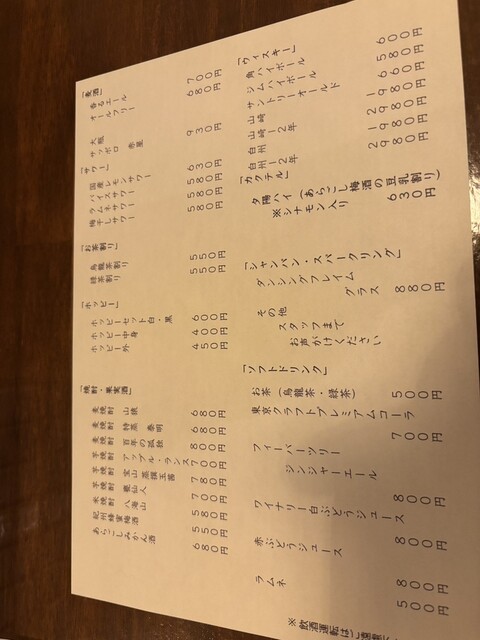 「麦酒」
香るエール 700円
オールフリー 680円
大瓶
サッポロ 赤星 930円
「サワー」
国産レモンサワー 630円
バイスサワー 580円
ラムネサワー 580円
梅干しサワー 580円
「お茶割り」
烏龍茶割り 550円
緑茶割り 550円
「ホッピー」
ホッピーセット白・黒 600円
ホッピー中身 400円
ホッピー外 450円
「焼酎・果実酒」
麦焼酎 山猿 680円
麦焼酎 特蒸 泰明 680円
麦焼酎 百年の孤独 800円
芋焼酎 アップル・ランス 700円
芋焼酎 宝山 蒸撰玉茜 780円
芋焼酎 甕仙人 700円
米焼酎 八海山 580円
紀州蜂蜜梅酒 550円
あらごしみかん酒 680円
「ウィスキー」
角ハイボール 600円
ジムハイボール 580円
サントリーオールド 660円
山崎 1980円
山崎12年 2980円
白州 1980円
白州12年 2980円
「カクテル」
夕陽ハイ(あらごし梅酒の豆乳割り)
※シナモン入り 630円
「シャンパン・スパークリング」
ダンシングフレイム
グラス 880円
その他
スタッフまで
お声がけください
「ソフトドリンク」
お茶(烏龍茶・緑茶) 500円
東京クラフトプレミアムコーラ
700円
フィーバーツリー
ジンジャーエール
800円
ワイナリー白ぶどうジュース
800円
赤ぶどうジュース
800円
ラムネ 500円
※飲酒運転はご遠慮く